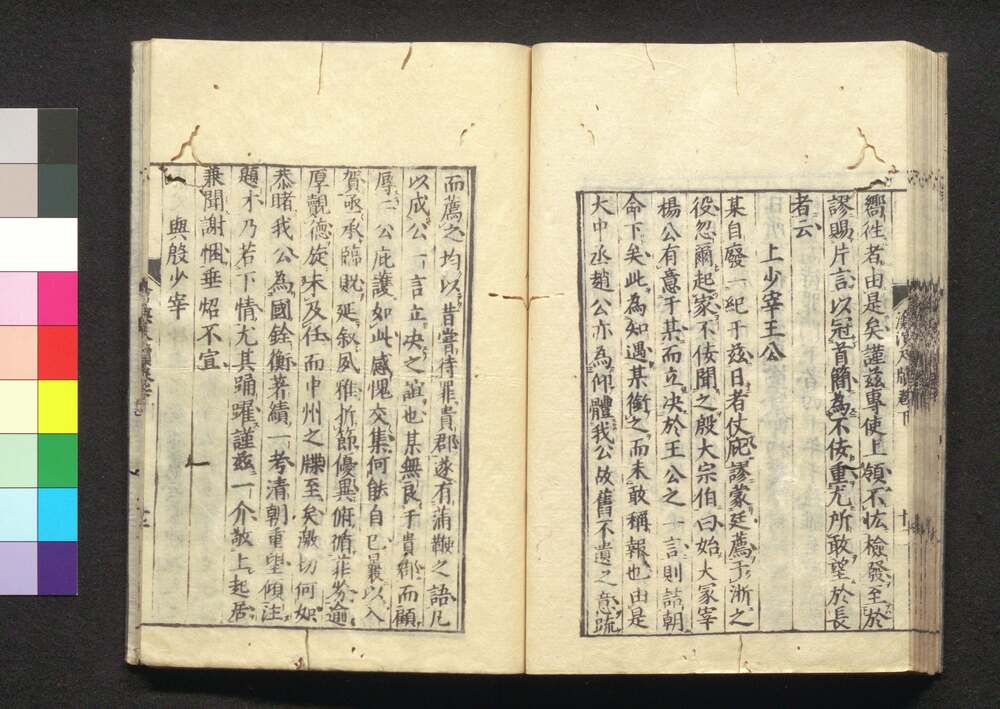 嚮徃者由是矣謹茲專使上領不恡檢發至於
謬賜片言以冠首簡為不佞重尤所敢望於長
者云
上少宰王公
某自廢一紀于茲日者仗庇謬蒙廷薦于浙之
役忽爾起家不佞聞之殷大宗伯曰始大冢宰
楊公有意于某而立决於王公之一言則詰朝
命下矣此為知遇某銜之而未敢稱報也由是
大中丞趙公亦為仰體我公故舊不遺之意疏
而薦之均以昔嘗待罪貴郡遂有蒲鞭之語凡
以成公一言立决之誼也某無良于貴鄉而顧
辱二公庇護如此感愧交集何能自已曩以入
賀亟承臨貺延叙夙雅折節優異俯循菲劣逾
厚覿德旋未及任而中州之牒至矣激切何如
恭睹我公為國銓衡著績一考清朝重望傾注
題才乃若下情尤其踊躍謹茲一介敬上起居
兼聞謝悃垂炤不宣
與殷少宰